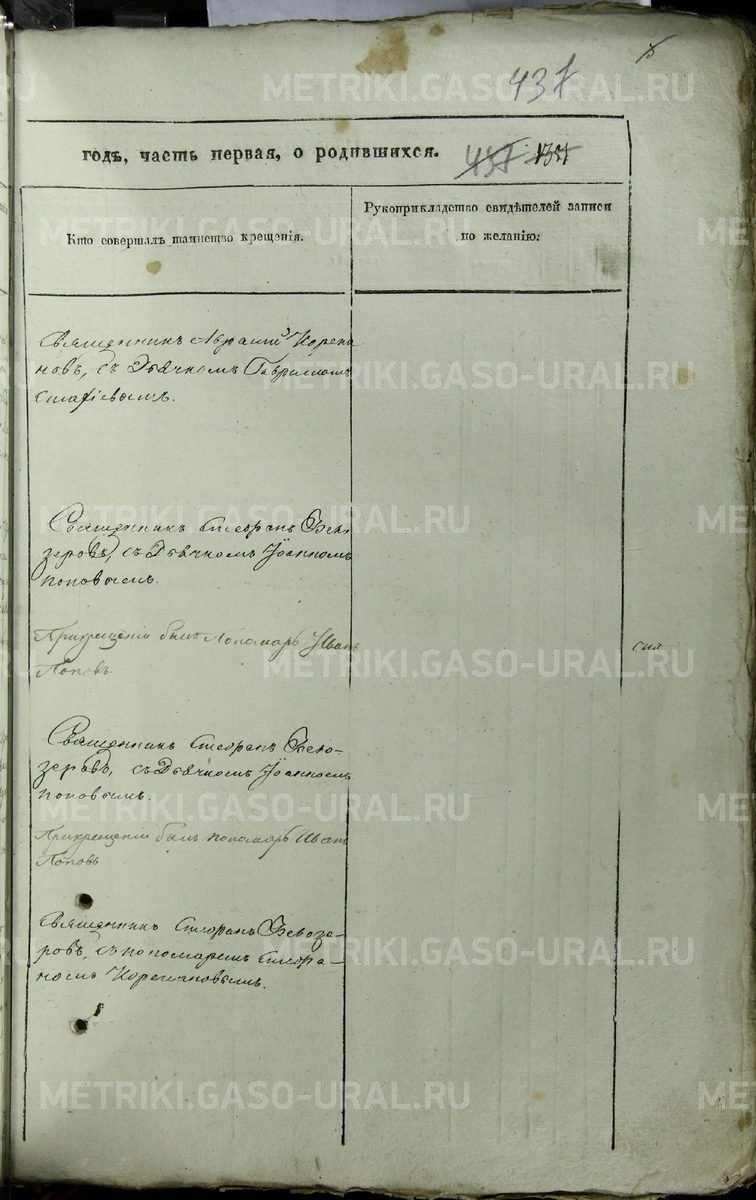 METRIKI.GASO-URAL.RU
437
годъ, часть первая, о родившихся.
Кто совершалъ таинство крещенія.
Рукоприкладство свидѣтелей записи
по желанію:
Священникъ Аврамій Корепа
новъ, съ Дьячкомъ Гавриломъ
Священникъ Стефанъ Бѣло
зеровъ, съ Дьячкомъ Іоанномъ
поповымъ.
При крещеніи былъ Пономарь Иванъ
Поповъ.
Священникъ Стефанъ Бѣло-
зеровъ, съ Дьячкомъ Іоанномъ
поповымъ.
При крещеніи былъ пономарь Иванъ
Поповъ
Священникъ Стефанъ Бѣлозе-
ровъ, съ пономаремъ Стефа-
номъ Корепановымъ.